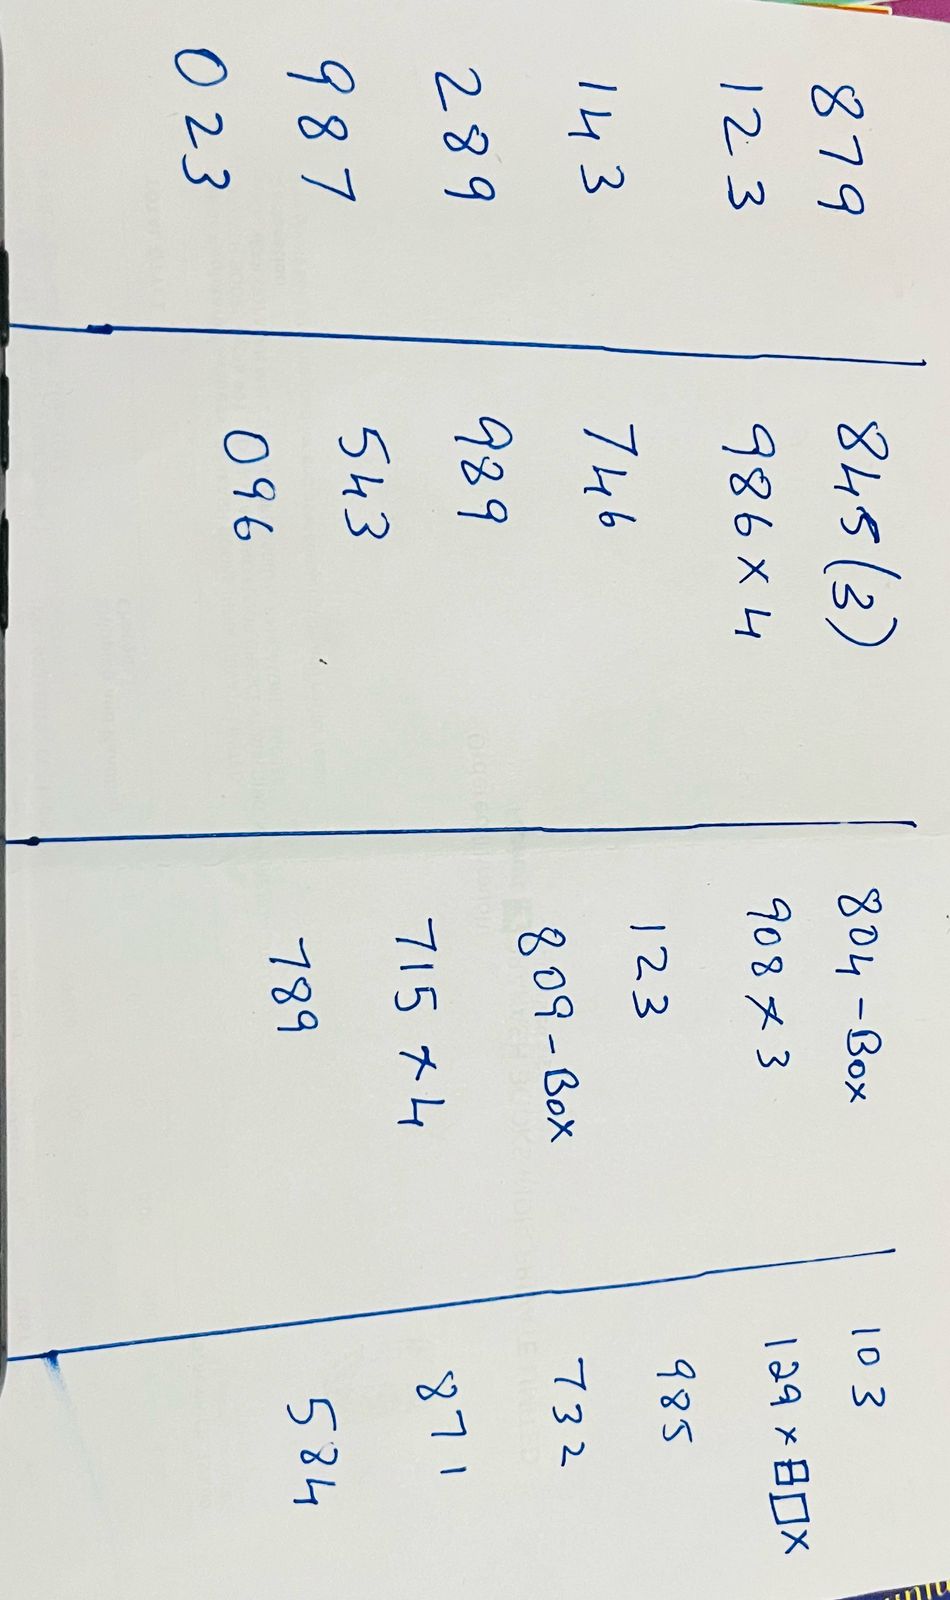 879
123
143
289
987
023
845(3)
986×4
746
989
543
096
804-Box
908×3
123
809-Box
715×4
789
103
129×BOX
985
732
871
584